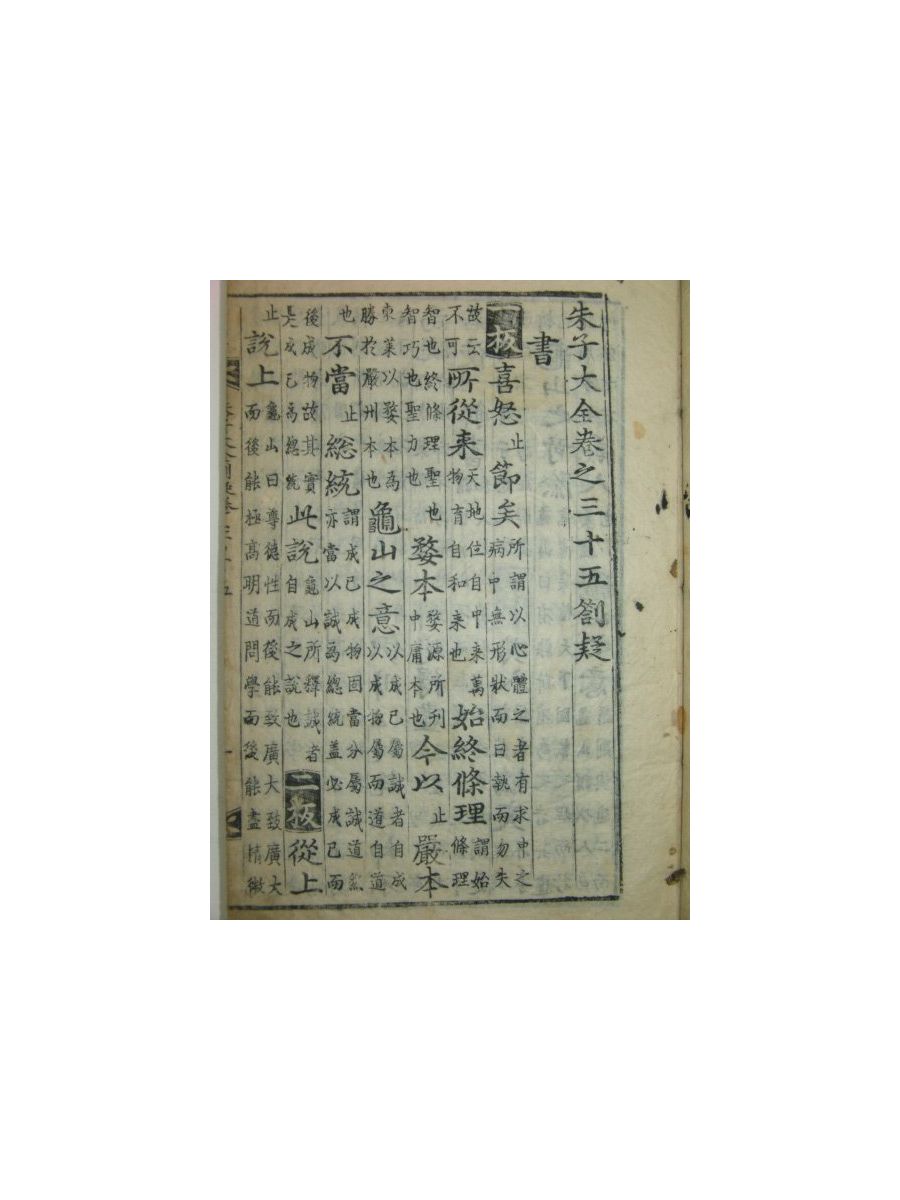 朱子大全卷之三十五箚疑
書
板 喜怒止節矣所謂以心體之者有求中之病中無形狀而曰執而勿失
故云不可所從来天地位自中来萬物育自和来也始終條理謂始條理
智也終條理聖也智巧也聖力也婺本婺源所刊中庸本也今以止嚴本
東莱以婺本為勝於嚴州本也龜山之意以成已屬誠者自成以成物屬而道自道
也不當止総統謂成已成物固當分屬誠道然亦當以誠為總統盖必成已而
後成物故其實是成已為總統此說龜山所釋誠者自成之說也二板從上
止說上龜山曰尊德性而後能致廣大致廣大而後能極高明道問學而後能盡精微